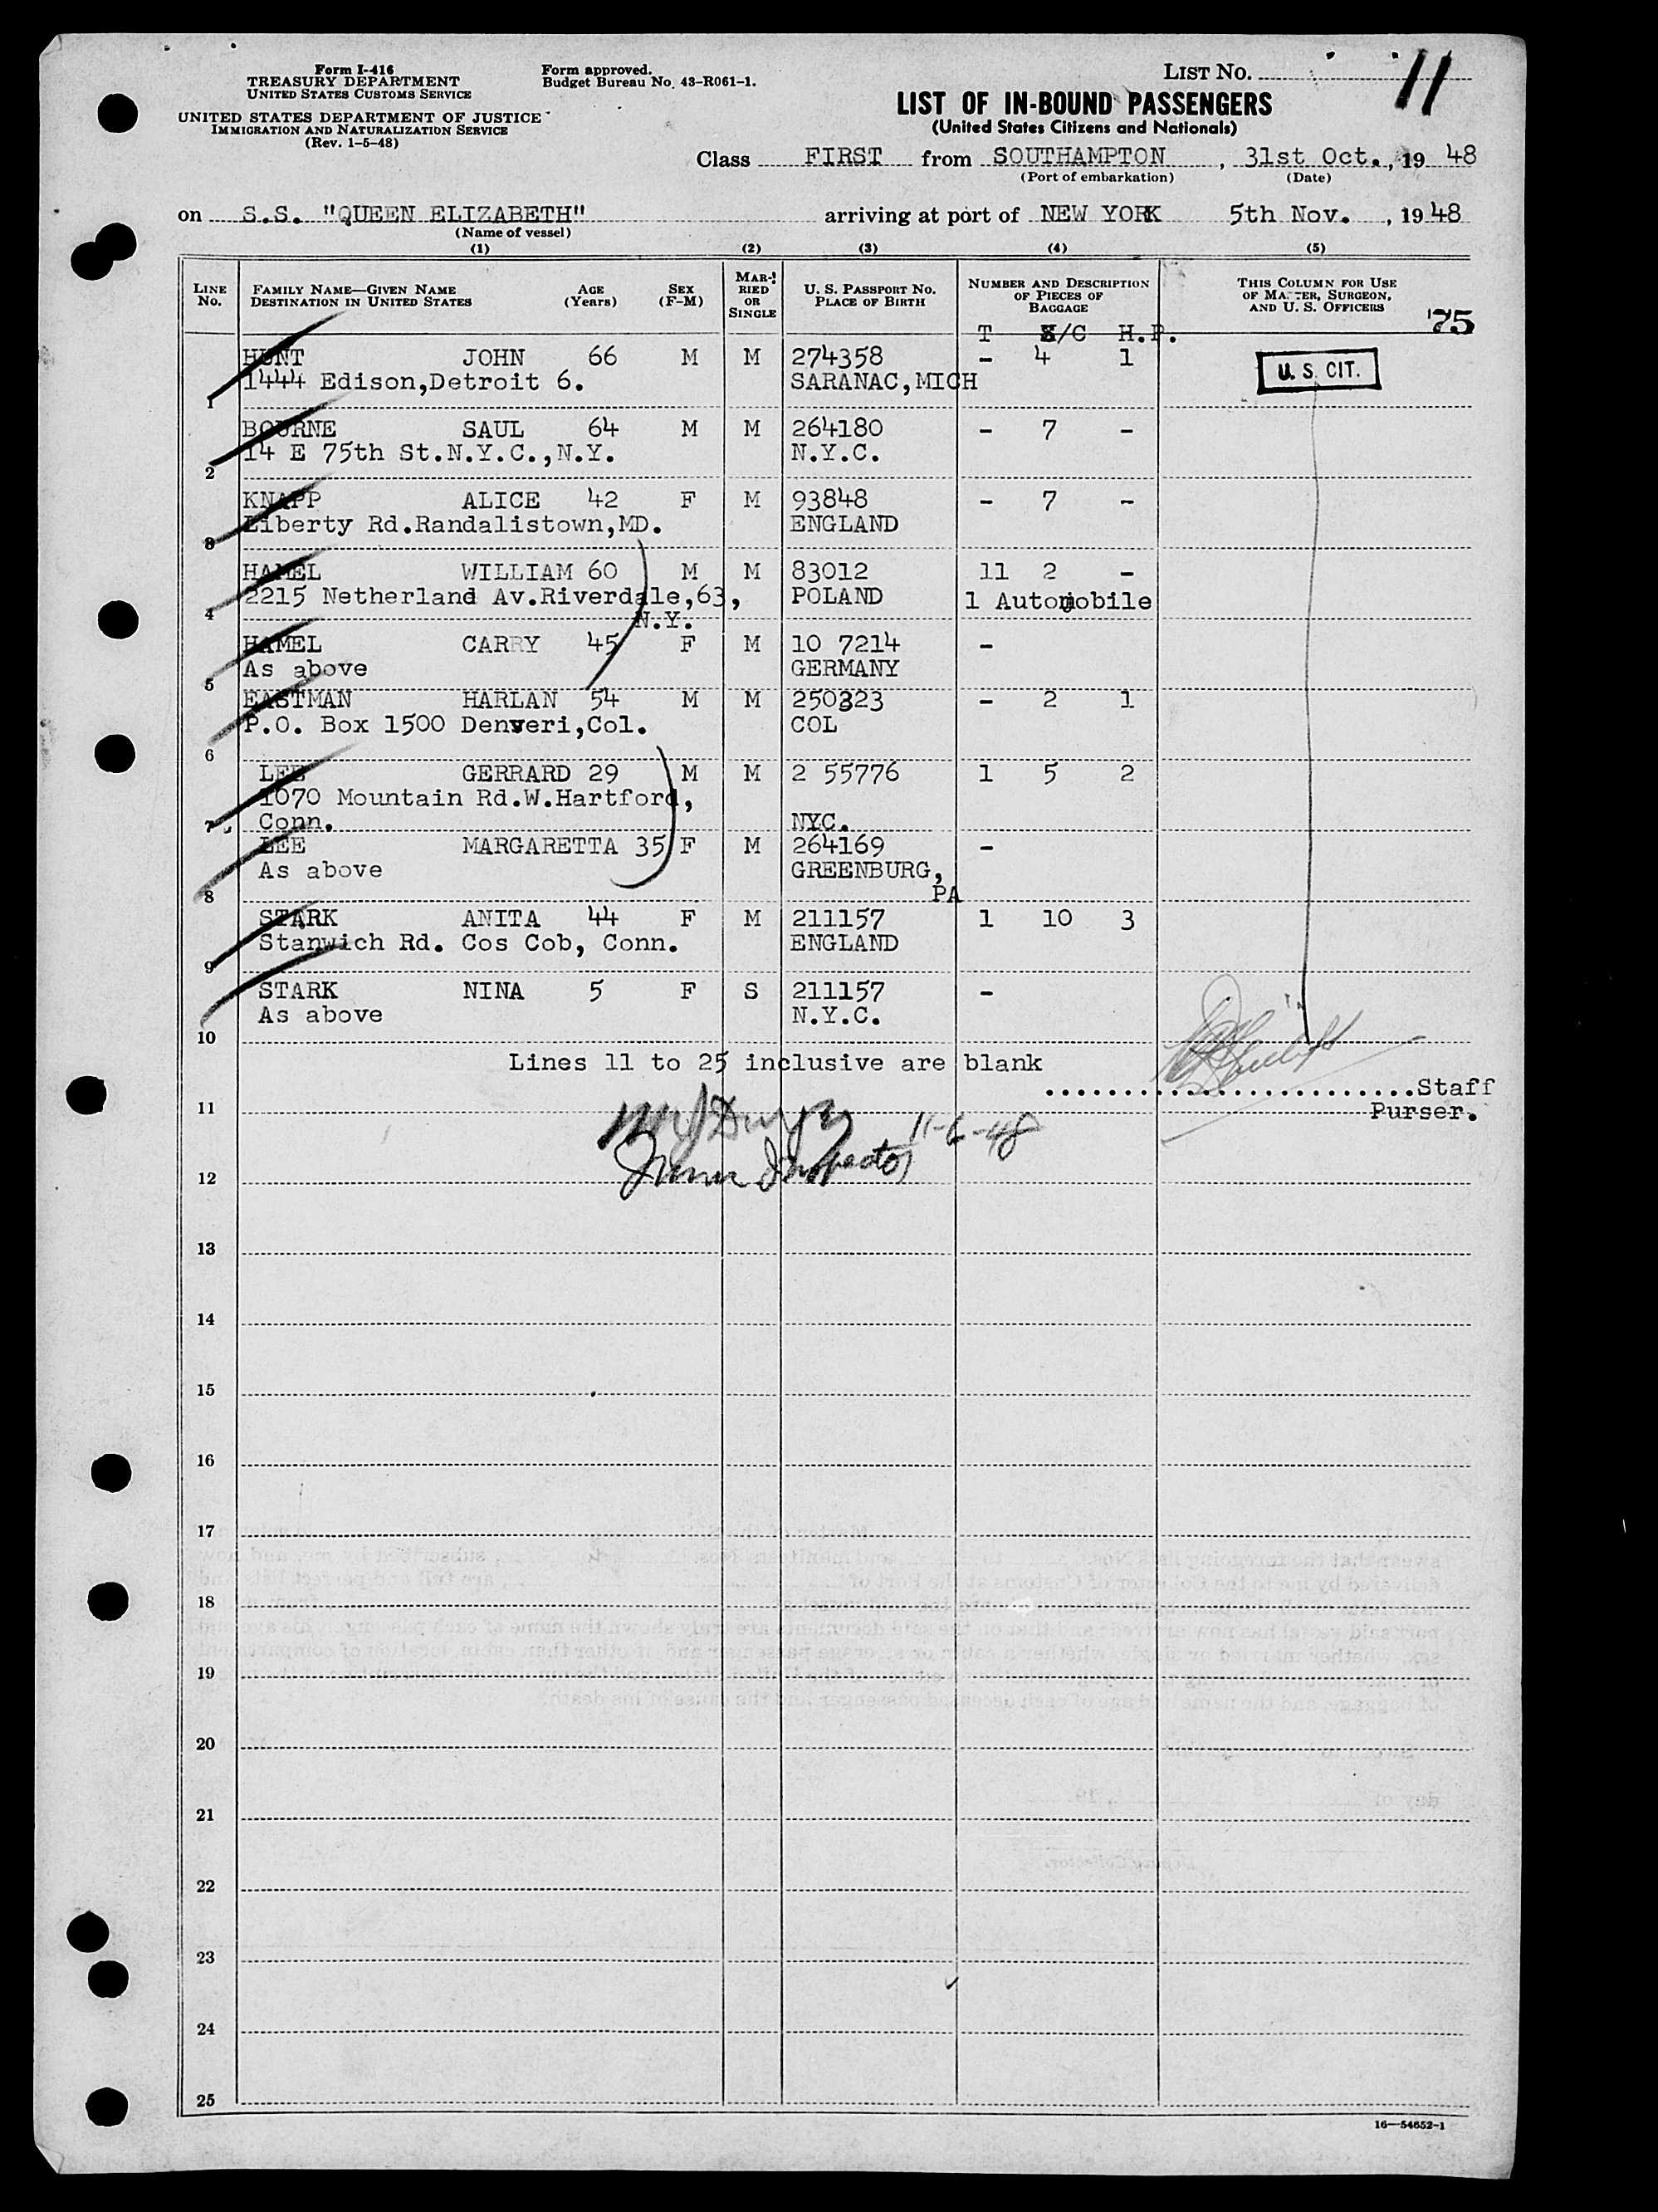 Form I-416
TREASURY DEPARTMENT
UNITED STATES CUSTOMS SERVICE
UNITED STATES DEPARTMENT OF JUSTICE
IMMIGRATION AND NATURALIZATION SERVICE
(Rev. 1-5-48)
Form approved.
Budget Bureau No. 43-R061-1.
LIST NO. 11
LIST OF IN-BOUND PASSENGERS
(United States Citizens and Nationals)
Class FIRST from SOUTHAMPTON, 31st Oct., 19 48
(Port of embarkation) (Date)
on S.S. "QUEEN ELIZABETH" arriving at port of NEW YORK 5th Nov., 19 48
(Name of vessel)
(1) (2) (3) (4) (5)
LINE No. FAMILY NAME—GIVEN NAME DESTINATION IN UNITED STATES AGE (Years) SEX (F-M) MARRIED OR SINGLE U. S. PASSPORT NO. PLACE OF BIRTH NUMBER AND DESCRIPTION OF PIECES OF BAGGAGE THIS COLUMN FOR USE OF MASTER, SURGEON, AND U. S. OFFICERS
75
T S/C H.P.
HUNT JOHN 66 M M 274358 - 4 1 U. S. CIT.
1 1444 Edison,Detroit 6. SARANAC,MICH
BOURNE SAUL 64 M M 264180 - 7 -
2 14 E 75th St.N.Y.C.,N.Y. N.Y.C.
KNAPP ALICE 42 F M 93848 - 7 -
3 Liberty Rd.Randalistown,MD. ENGLAND
HAMEL WILLIAM 60 M M 83012 11 2 -
4 2215 Netherland Av.Riverdale,63, POLAND 1 Automobile
N.Y.
HAMEL CARRY 45 F M 10 7214 -
5 As above GERMANY
EASTMAN HARLAN 54 M M 250323 - 2 1
P.O. Box 1500 Denveri,Col. COL
6
LEE GERRARD 29 M M 2 55776 1 5 2
1070 Mountain Rd.W.Hartford,
7 Conn. NYC.
LEE MARGARETTA 35 F M 264169 -
As above GREENBURG,
8 PA
STARK ANITA 44 F M 211157 1 10 3
Stanwich Rd. Cos Cob, Conn. ENGLAND
9
STARK NINA 5 F S 211157 -
As above N.Y.C.
10
Lines 11 to 25 inclusive are blank
Staff
11 Purser.
11-6-48
Inspector
12
13
14
15
16
17
18
19
20
21
22
23
24
25
16—54652-1